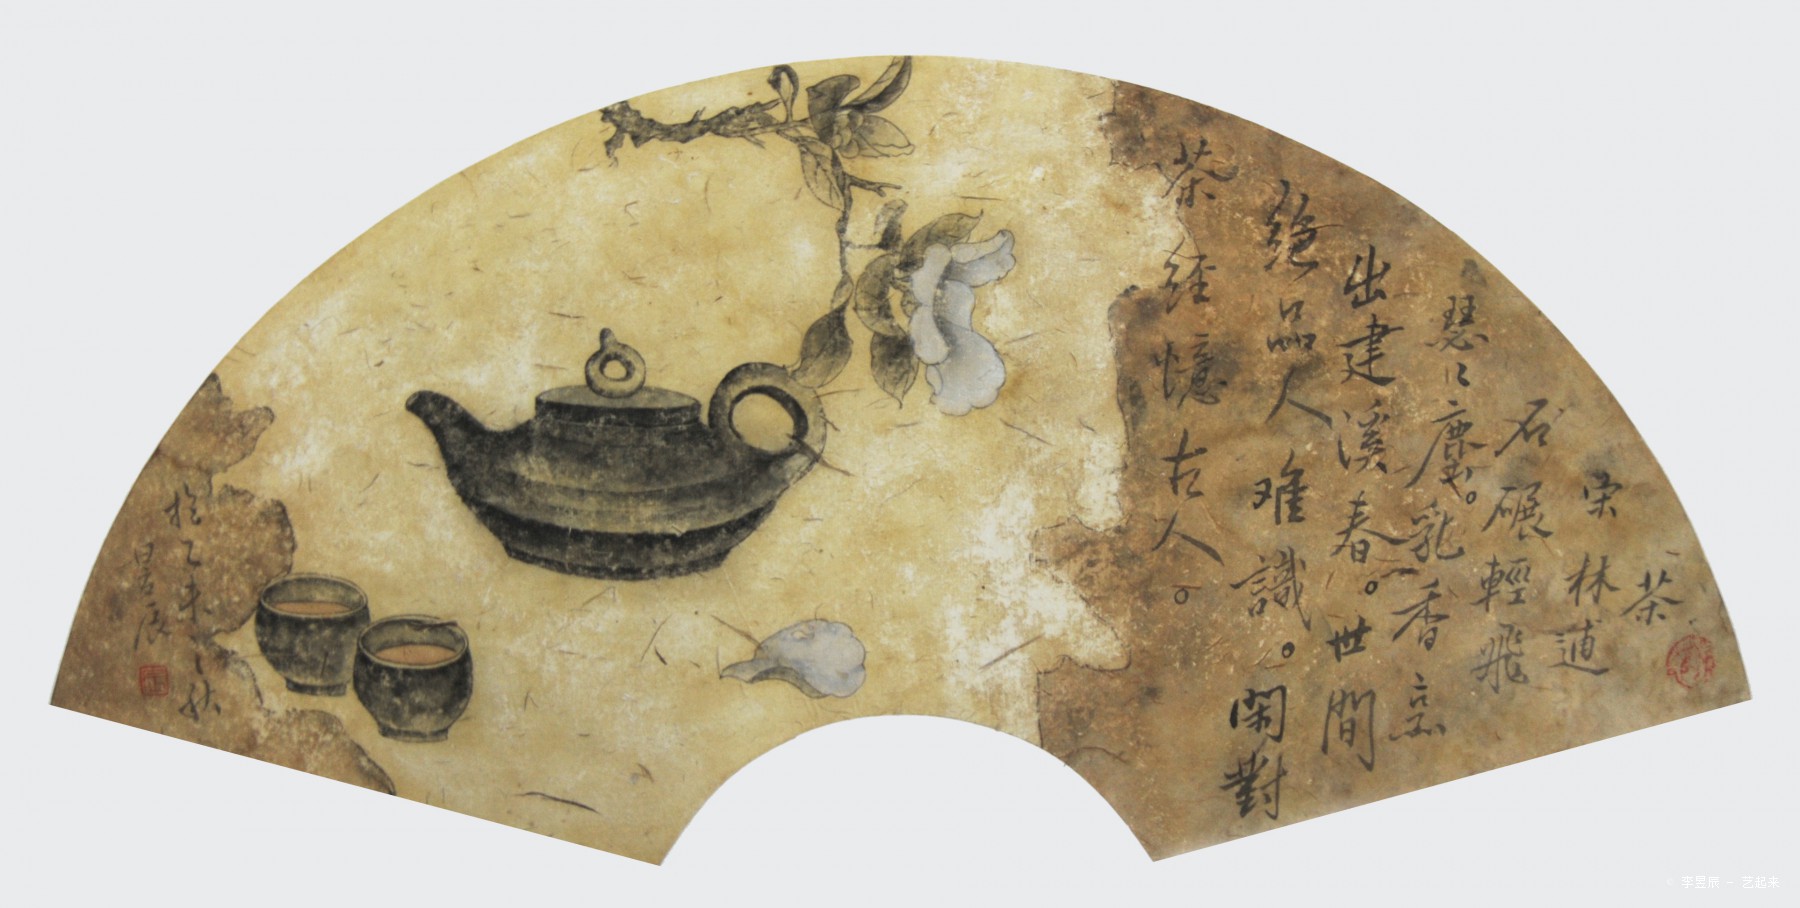 茶
宋林逋
石碾輕飛
瑟〻塵。乳香烹
出建溪春。世間
絕品人难識。閑對
茶经憶古人。
於乙未之秋
昱辰
© 李昱辰 - 艺起来